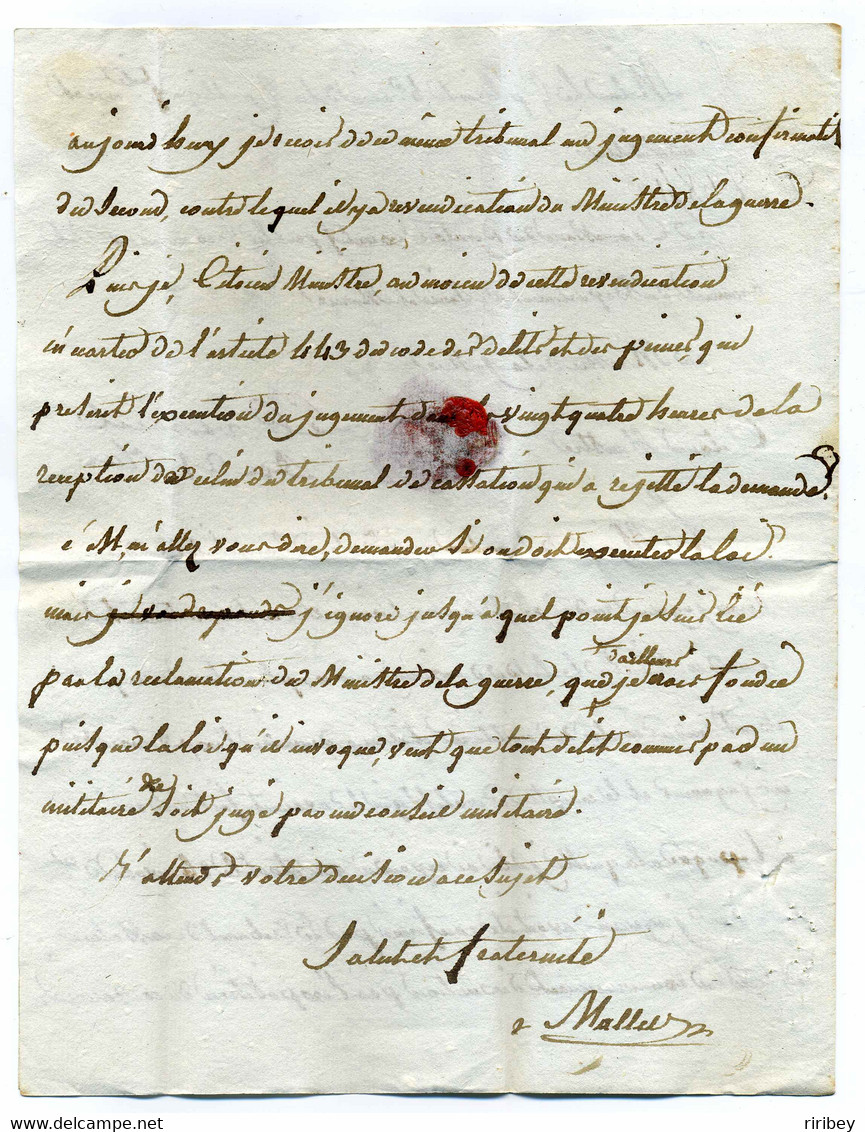 aujourd'huy je recois de ce même tribunal un jugement confirmatif
du second, contre lequel il y a revendication du Ministre de la guerre.
Puis je, Citoien Ministre, au moien de cette revendication
m'ecarter de l'article 443 du code des delits et des peines, qui
prescrit l'execution du jugement dans les vingt quatre heures de la
reception de celui du tribunal de cassation qui a rejetté la demande?
c'est, m'allez vous dire, demander si on doit executer la loi.
mais j'ignore jusqu'à quel point je suis lié
par la reclamation du Ministre de la guerre, que d'ailleurs je crois fondée
puisque la loi qu'il invoque, veut que tout delit commis par un
militaire soit jugé par un conseil militaire.
J'attends votre decision a ce sujet
Salut et fraternité
Mallet
riribey